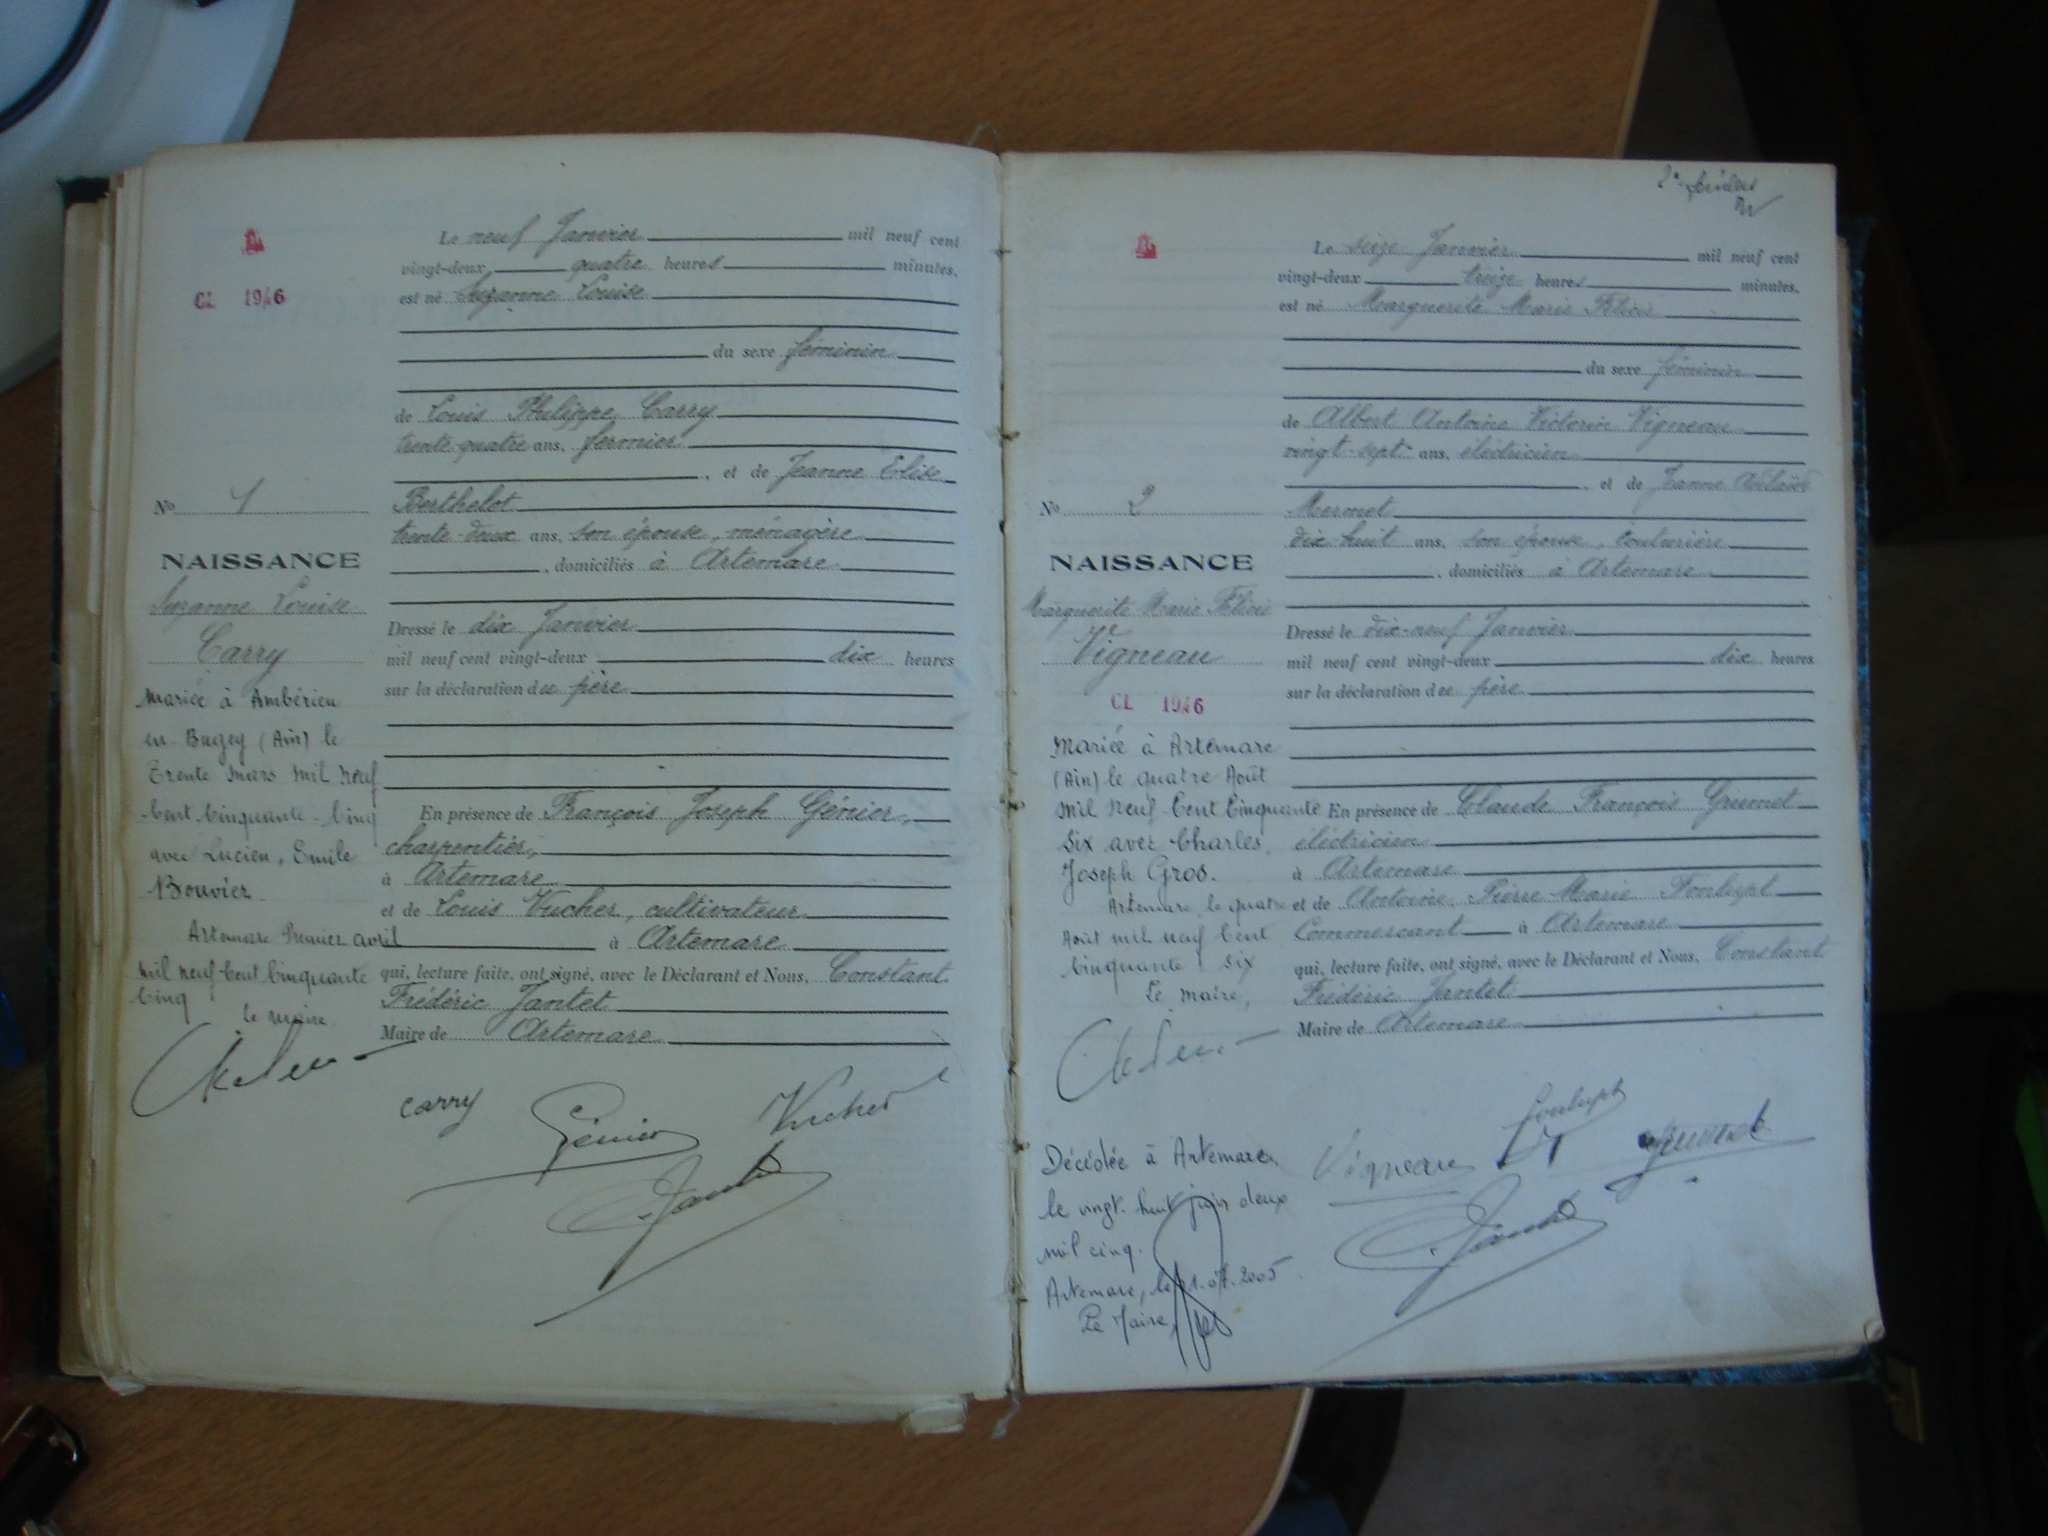 Le neuf Janvier mil neuf cent
vingt-deux quatre heures minutes,
est né Suzanne Louise
du sexe féminin
de Louis Philippe Carry
trente quatre ans, fermier
, et de Jeanne Elise
Berthelot
trente-deux ans, son épouse, ménagère
, domiciliés à Artemare
Dressé le dix Janvier
mil neuf cent vingt-deux dix heures
sur la déclaration du père
En présence de François Joseph Génier,
charpentier,
à Artemare
et de Louis Vucher, cultivateur
à Artemare
qui, lecture faite, ont signé, avec le Déclarant et Nous, Constant
Frédéric Jantet
Maire de Artemare
carry Génier Vucher
Jantet
CL 1946
No 1
NAISSANCE
Suzanne Louise
Carry
Mariée à Ambérieu
en Bugey (Ain) le
Trente mars mil neuf
Cent Cinquante-Cinq
avec Lucien, Emile
Bouvier
Artemare Premier avril
mil neuf Cent Cinquante
Cinq
le maire
Le seize Janvier mil neuf cent
vingt-deux treize heures minutes,
est né Marguerite Marie
du sexe féminin
de Albert Antoine Victorin Vigneau
vingt-sept ans, électricien
, et de Jeanne Adélaïde
Mermet
dix huit ans, son épouse, couturière
, domiciliés à Artemare
Dressé le dix-neuf Janvier
mil neuf cent vingt-deux dix heures
sur la déclaration du père
En présence de Claude François Grumet
électricien
à Artemare
et de Antoine Pierre-Marie Fonlupt
Commercant à Artemare
qui, lecture faite, ont signé, avec le Déclarant et Nous, Constant
Frédéric Jantet
Maire de Artemare
Fonlupt
Vigneau Grumet
Jantet
No 2
NAISSANCE
Marguerite Marie
Vigneau
CL 1946
Mariée à Artemare
(Ain) le quatre Août
mil neuf Cent Cinquante
Six avec Charles
Joseph Gros.
Artemare, le quatre
Août mil neuf Cent
Cinquante six
Le maire,
Décédée à Artemare
le vingt-huit juin deux
mil cinq.
Artemare, le 1.07.2005
Le Maire,